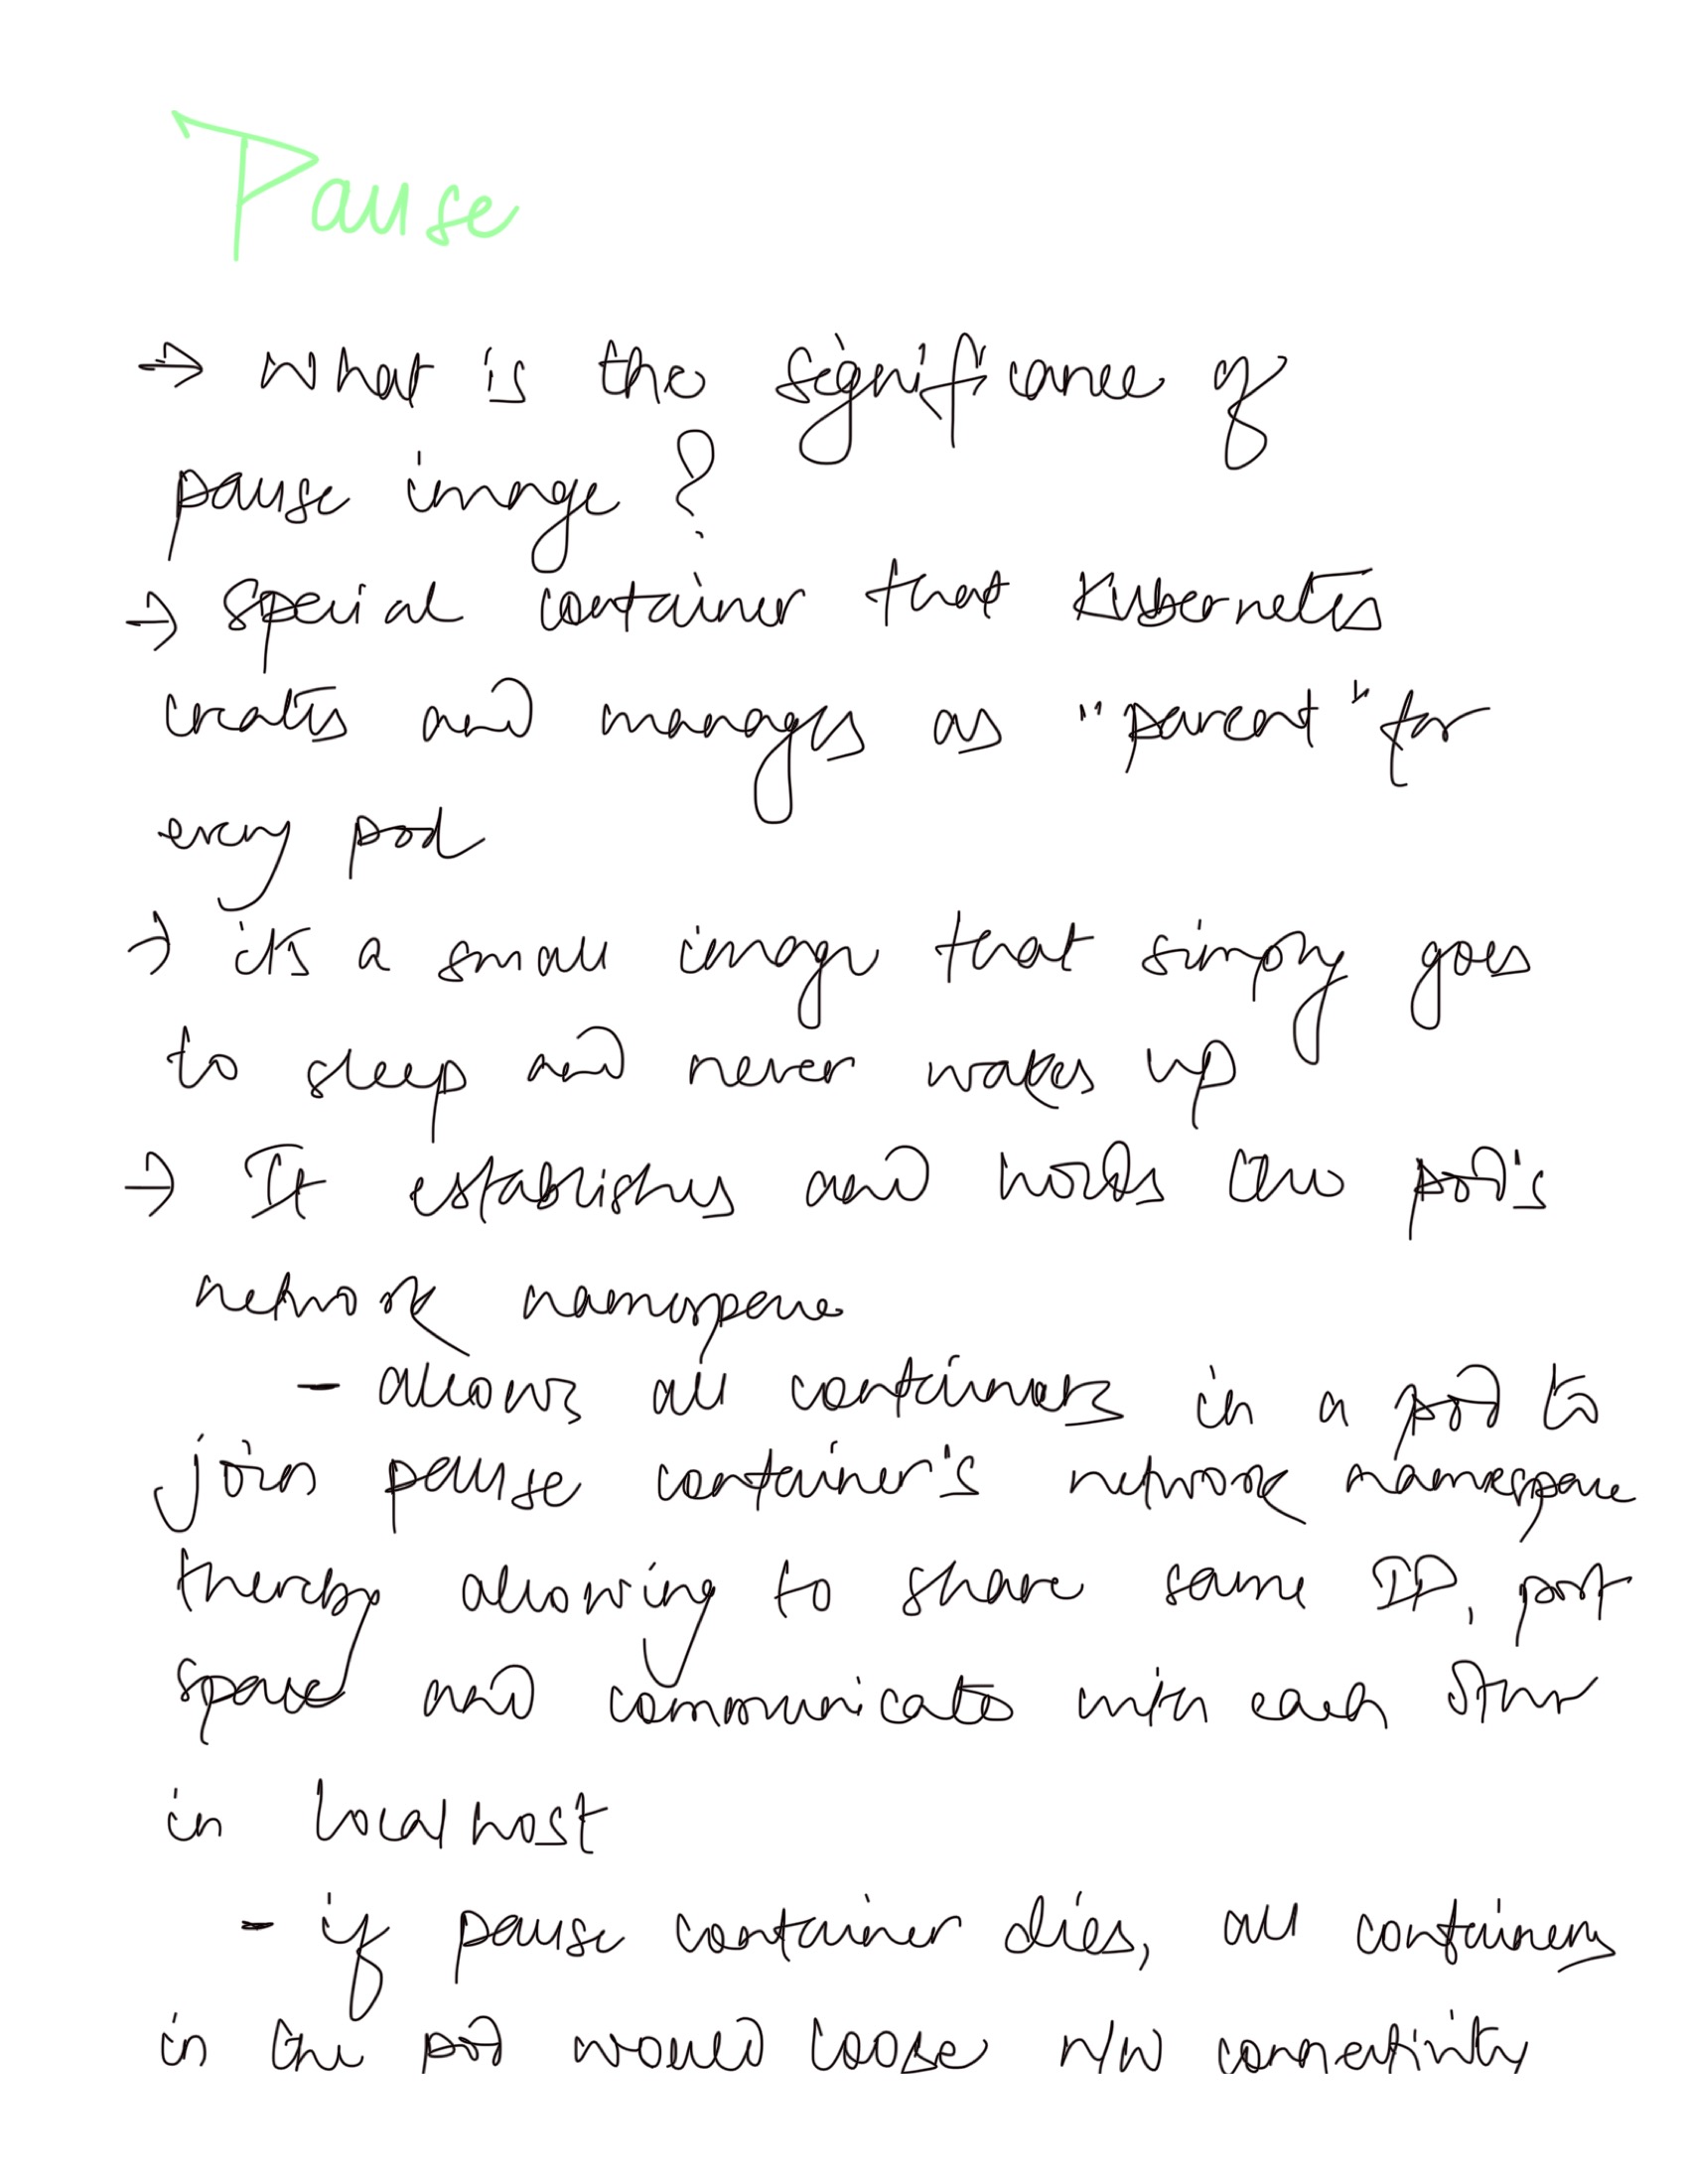 Pause
→ What is the significance of
pause image ?
→ Special container that Kubernetes
creates and manages as "parent" for
every pod
→ it's a small image that simply goes
to sleep and never wakes up
→ It establishes and holds the pod's
network namespace
- allows all containers in a pod to
join pause container's network namespace
thereby allowing to share same IP, port
space and communicates with each other
in localhost
- if pause container dies, all containers
in the pod would loose n/w connectivity